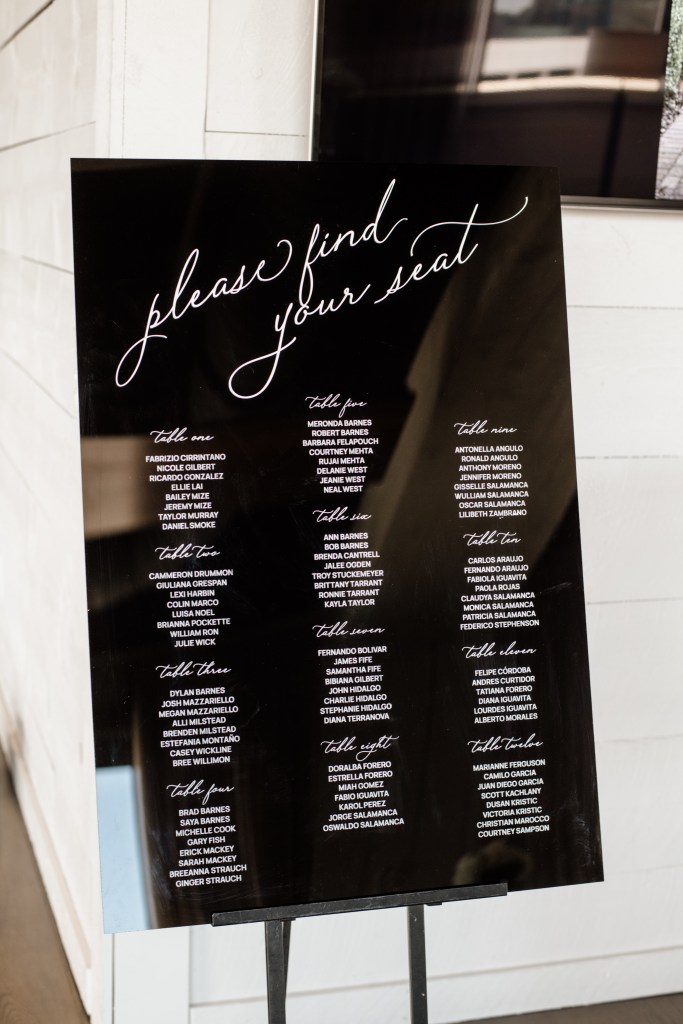 please find
your seat
table one
FABRIZIO CIRRINTANO
NICOLE GILBERT
RICARDO GONZALEZ
ELLIE LAI
BAILEY MIZE
JEREMY MIZE
TAYLOR MURRAY
DANIEL SMOKE
table two
CAMMERON DRUMMON
GIULIANA GRESPAN
LEXI HARBIN
COLIN MARCO
LUISA NOEL
BRIANNA POCKETTE
WILLIAM RON
JULIE WICK
table three
DYLAN BARNES
JOSH MAZZARIELLO
MEGAN MAZZARIELLO
ALLI MILSTEAD
BRENDEN MILSTEAD
ESTEFANIA MONTAÑO
CASEY WICKLINE
BREE WILLIMON
table four
BRAD BARNES
SAYA BARNES
MICHELLE COOK
GARY FISH
ERICK MACKEY
SARAH MACKEY
BREEANNA STRAUCH
GINGER STRAUCH
table five
MERONDA BARNES
ROBERT BARNES
BARBARA FELAPOUCH
COURTNEY MEHTA
RUJAI MEHTA
DELANIE WEST
JEANIE WEST
NEAL WEST
table six
ANN BARNES
BOB BARNES
BRENDA CANTRELL
JALEE OGDEN
TROY STUCKEMEYER
BRITTANY TARRANT
RONNIE TARRANT
KAYLA TAYLOR
table seven
FERNANDO BOLIVAR
JAMES FIFE
SAMANTHA FIFE
BIBIANA GILBERT
JOHN HIDALGO
CHARLIE HIDALGO
STEPHANIE HIDALGO
DIANA TERRANOVA
table eight
DORALBA FORERO
ESTRELLA FORERO
MIAH GOMEZ
FABIO IGUAVITA
KAROL PEREZ
JORGE SALAMANCA
OSWALDO SALAMANCA
table nine
ANTONELLA ANGULO
RONALD ANGULO
ANTHONY MORENO
JENNIFER MORENO
GISSELLE SALAMANCA
WULLIAM SALAMANCA
OSCAR SALAMANCA
LILIBETH ZAMBRANO
table ten
CARLOS ARAUJO
FERNANDO ARAUJO
FABIOLA IGUAVITA
PAOLA ROJAS
CLAUDYA SALAMANCA
MONICA SALAMANCA
PATRICIA SALAMANCA
FEDERICO STEPHENSON
table eleven
FELIPE CÓRDOBA
ANDRES CURTIDOR
TATIANA FORERO
DIANA IGUAVITA
LOURDES IGUAVITA
ALBERTO MORALES
table twelve
MARIANNE FERGUSON
CAMILO GARCIA
JUAN DIEGO GARCIA
SCOTT KACHLANY
DUSAN KRISTIC
VICTORIA KRISTIC
CHRISTIAN MAROCCO
COURTNEY SAMPSON